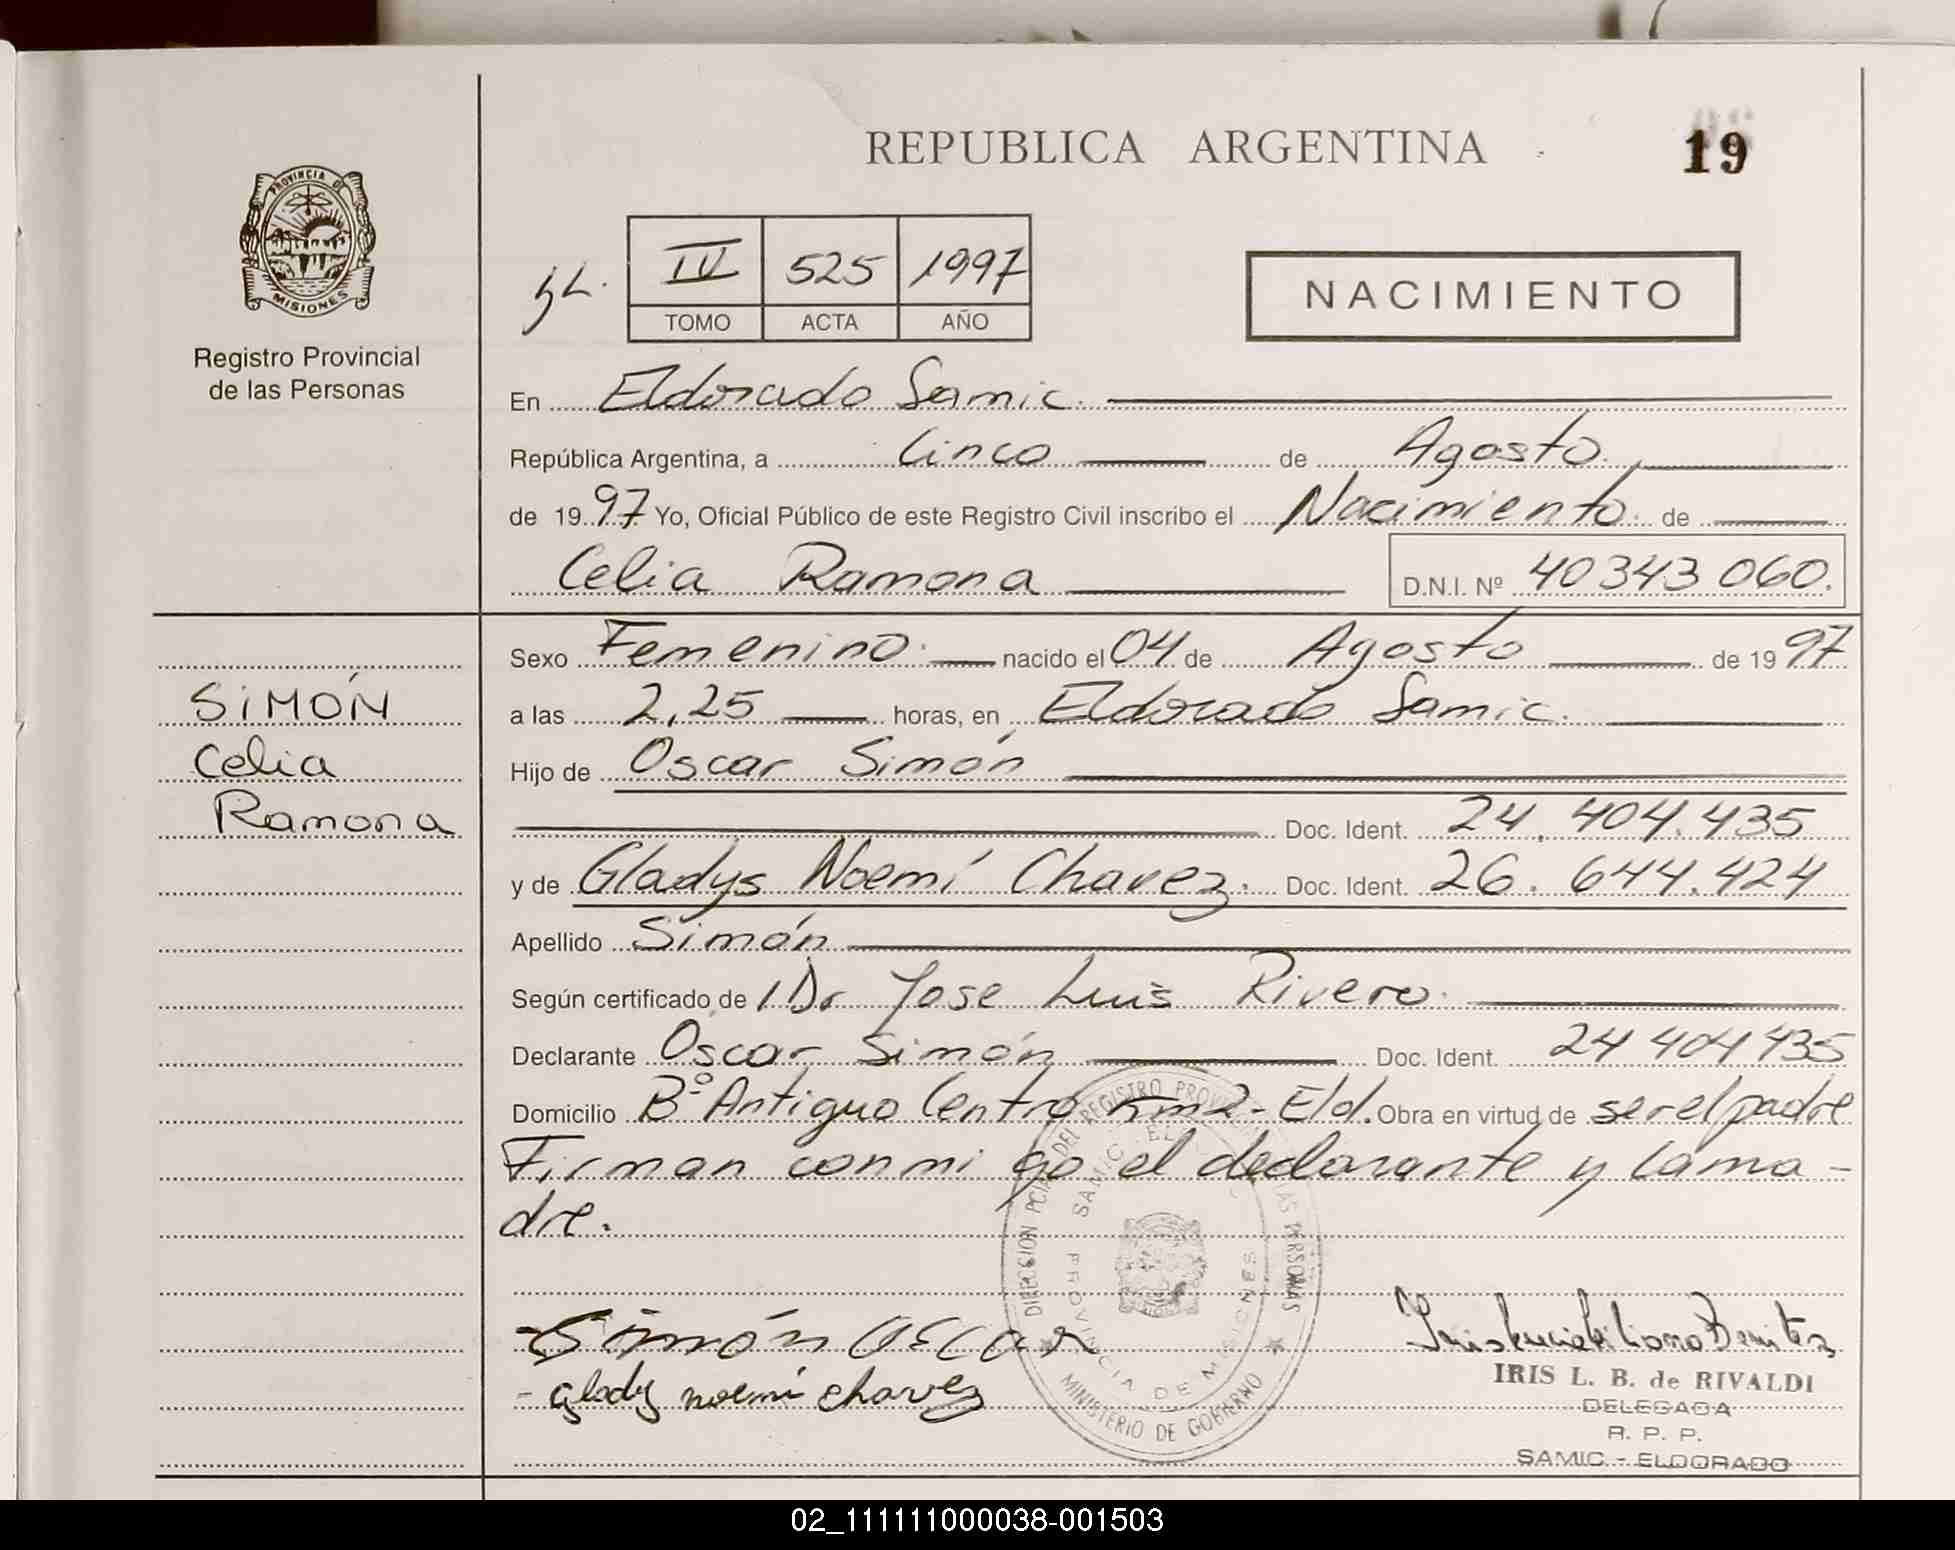 REPUBLICA ARGENTINA
19
PROVINCIA DE
MISIONES
Registro Provincial
de las Personas
IV 525 1997
TOMO ACTA AÑO
NACIMIENTO
En Eldorado Samic.
República Argentina, a Cinco de Agosto.
de 1997 Yo, Oficial Público de este Registro Civil inscribo el Nacimiento de
Celia Ramona D.N.I. Nº 40343060.
SIMÓN
Celia
Ramona
Sexo Femenino. nacido el 04 de Agosto de 1997
a las 2,25 horas, en Eldorado Samic.
Hijo de Oscar Simón
Doc. Ident. 24.404.435
y de Gladys Noemí Chavez. Doc. Ident. 26.644.424
Apellido Simón
Según certificado de Dr Jose Luis Rivero.
Declarante Oscar Simón Doc. Ident. 24 404 435
Domicilio Bº Antiguo Centro Km2-Eld. Obra en virtud de ser el padre
Firman conmigo el declarante y la ma-
dre.
DIRECCION PCIAL DEL REGISTRO PROVINCIAL DE LAS PERSONAS
SAMIC
PROVINCIA DE MISIONES
MINISTERIO DE GOBIERNO
- Simón Oscar
- Glady noemi chavez
Benitez
IRIS L. B. de RIVALDI
DELEGADA
R. P. P.
SAMIC - ELDORADO
02_111111000038-001503